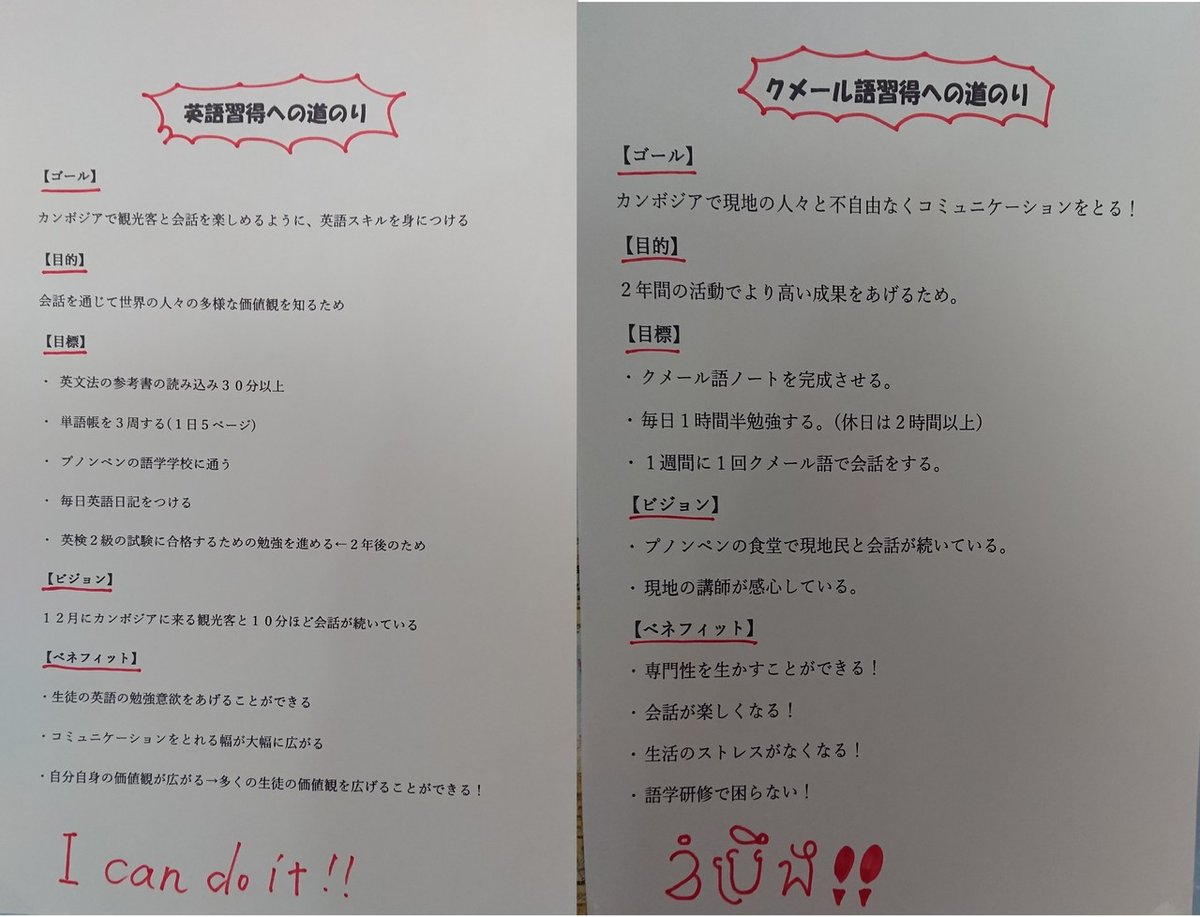 英語習得への道のり
【ゴール】
カンボジアで観光客と会話を楽しめるように、英語スキルを身につける
【目的】
会話を通じて世界の人々の多様な価値観を知るため
【目標】
・ 英文法の参考書の読み込み30分以上
・ 単語帳を3周する(1日5ページ)
・ プノンペンの語学学校に通う
・ 毎日英語日記をつける
・ 英検2級の試験に合格するための勉強を進める←2年後のため
【ビジョン】
12月にカンボジアに来る観光客と10分ほど会話が続いている
【ベネフィット】
・生徒の英語の勉強意欲をあげることができる
・コミュニケーションをとれる幅が大幅に広がる
・自分自身の価値観が広がる→多くの生徒の価値観を広げることができる!
I can do it!!
クメール語習得への道のり
【ゴール】
カンボジアで現地の人々と不自由なくコミュニケーションをとる!
【目的】
2年間の活動でより高い成果をあげるため。
【目標】
・クメール語ノートを完成させる。
・毎日1時間半勉強する。(休日は2時間以上)
・1週間に1回クメール語で会話をする。
【ビジョン】
・プノンペンの食堂で現地民と会話が続いている。
・現地の講師が感心している。
【ベネフィット】
・専門性を生かすことができる!
・会話が楽しくなる!
・生活のストレスがなくなる!
・語学研修で困らない!
ខំប្រឹង!!